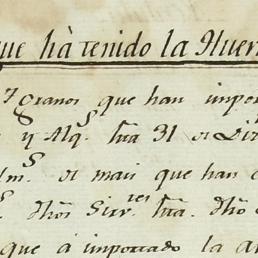 que hà tenido la Huer
7 granos que han impor
y Alqs. hta 31 de Di
ms. de maiz que han
dhos Sirv.tes hta. dho
que à importado la